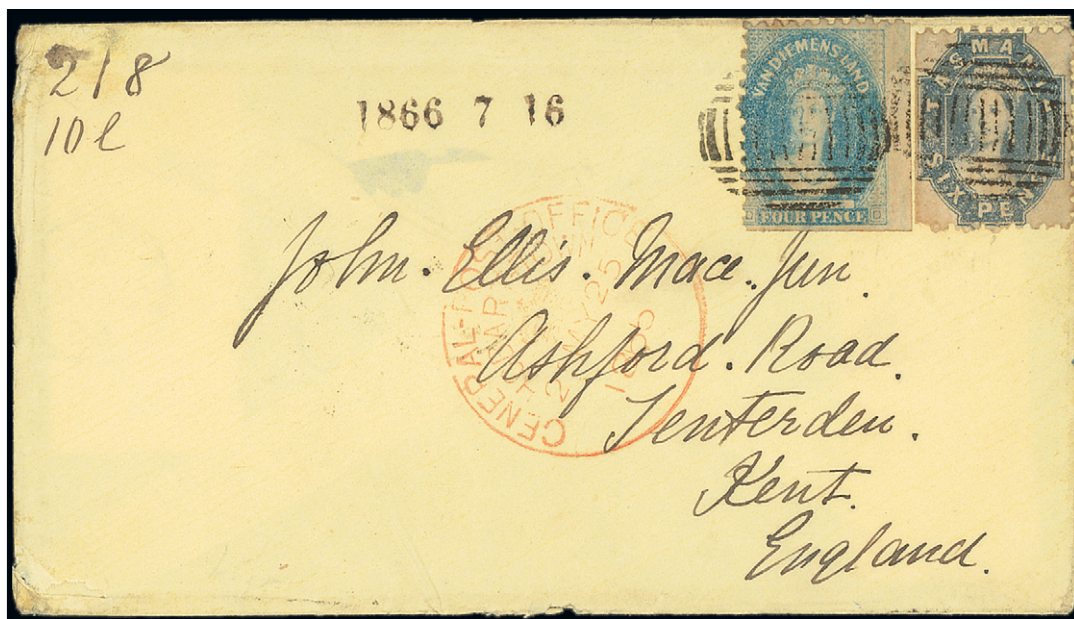 218
10
1866 7 16
VAN DIEMENS LAND
FOUR PENCE
TASMA
SIX PEN
GENERAL-POST OFFICE
MY 25
John. Ellis. Mace. Jun.
Ashford. Road.
Tenterden.
Kent.
England.